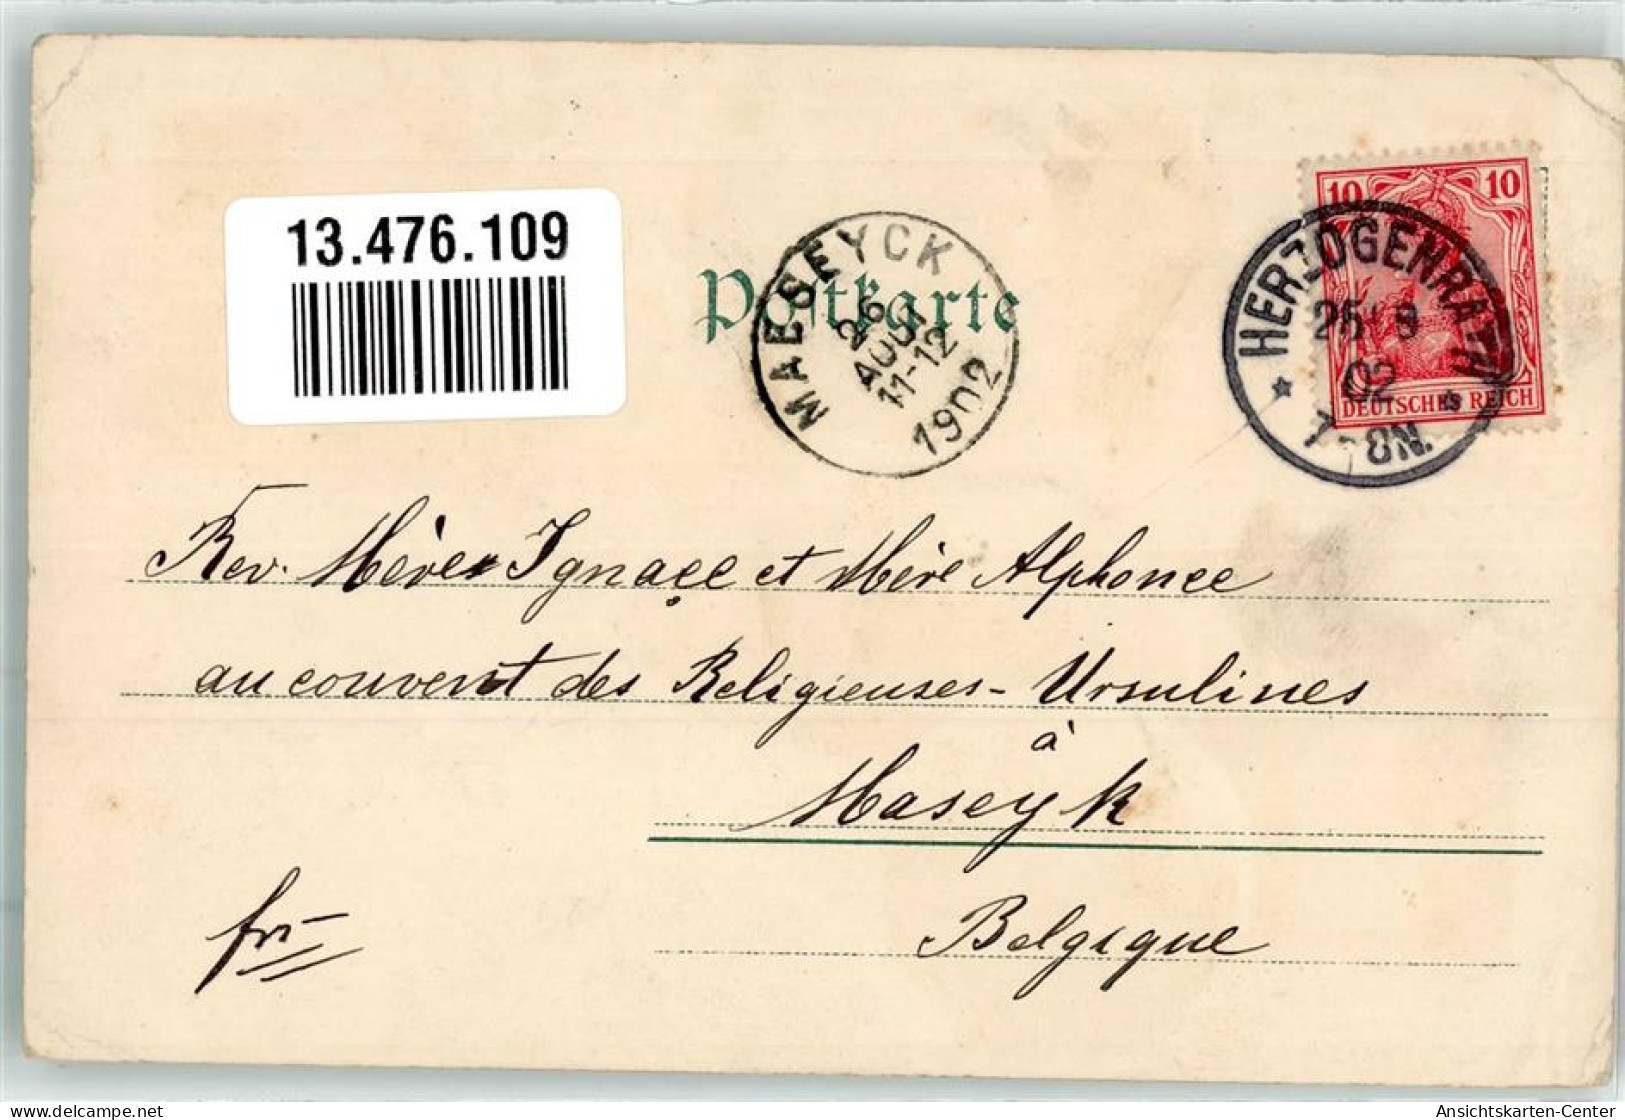 13.476.109
Postkarte
MAESEYCK
26
AOUT
11-12
1902
10 10
DEUTSCHES REICH
HERZOGENRATH
25 8
02
7-8N.
Rev. Mères Ignace et Mère Alphonce
au couvent des Religieuses-Ursulines
à
Maseyk
Belgique
Ansichtskarten-Center
www.delcampe.net